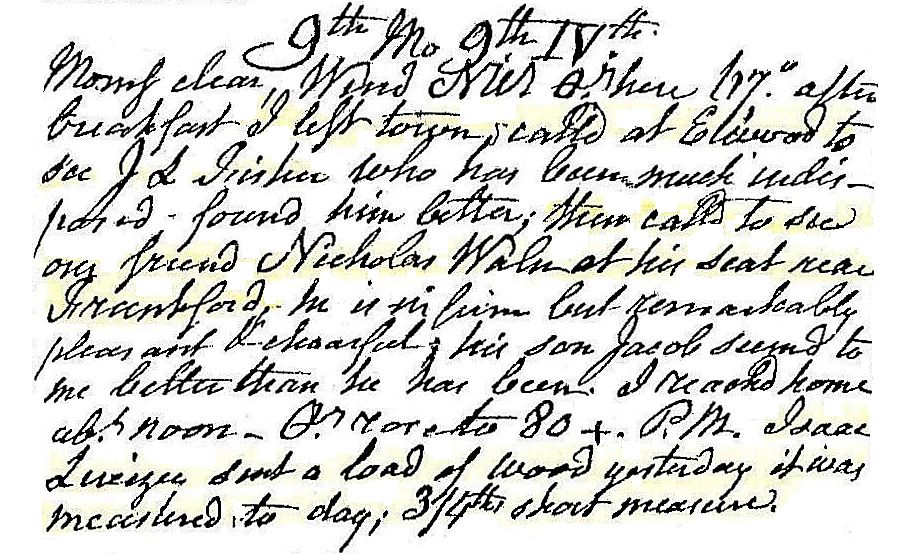 9th Mo 9th IVth.
Morng clear, Wind after
breakfast I left town, calld at to
see J L Fisher who has been much indis-
posed - found him better; then calld to see
our friend Nicholas Waln at his seat near
Frankford, he is infirm but remarkably
pleasant & chearful; his son Jacob seemd to
me better than he has been. I reachd home
abt noon - rose to 80 +. P.M. Isaac
sent a load of wood yesterday it was
measured to day; 3/4ths short measure.